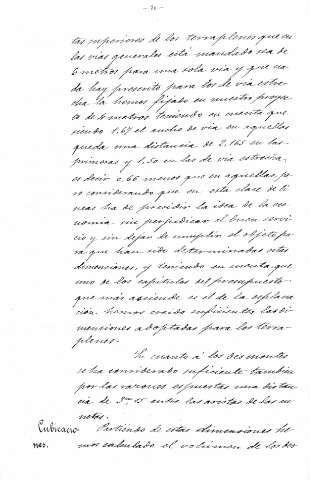 tas superiores de los terraplenes que en
las vias generales está mandado sea de
6 metros para una sola via y que na-
da hay prescrito para los de via estre-
cha la hemos fijado en nuestro proyec-
to de 4 metros teniendo en cuenta que
siendo 1,67 el ancho de via en aquellas
queda una distancia de 2,165 en las
primeras y 1,50 en las de via estrecha,
es decir 0,66 menos que en aquellas, pe-
ro considerando que en esta clase de li-
neas ha de presidir la idea de la eco-
nomia sin perjudicar el buen servi-
cio y sin dejar de cumplir el objeto pa-
ra que han sido determinadas estas
dimensiones, y teniendo en cuenta que
uno de los capitulos del presupuesto
que más asciende es el de la esplana-
cion, hemos creido suficientes las di-
mensiones adoptadas para los terra-
plenes.
En cuanto á los desmontes
se ha considerado suficiente tambien
por las razones espuestas una distan-
cia de 5m,15 entre las aristas de las cu-
netas.
Cubicacio- Partiendo de estas dimensiones he-
nes. mos calculado el volúmen de los des-